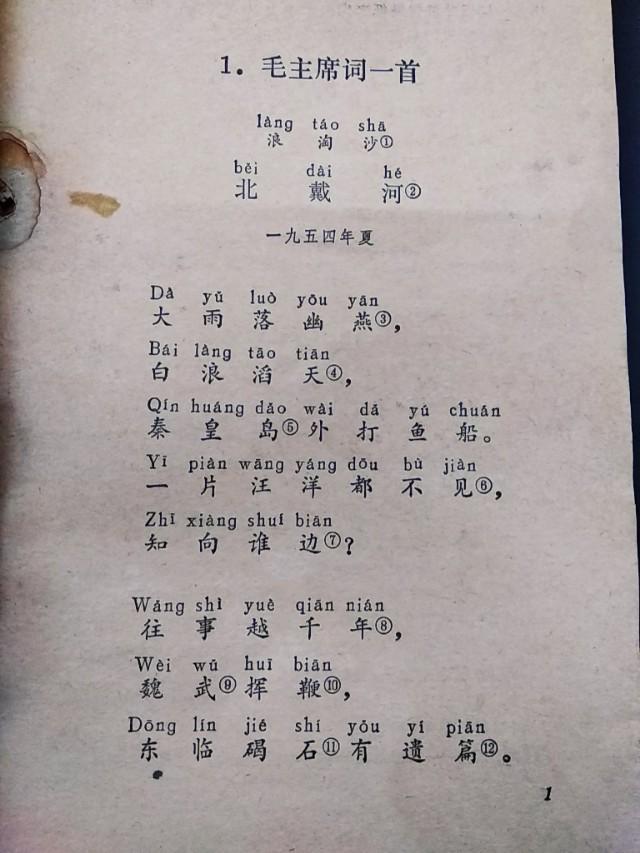 1. 毛主席词一首
làng táo shā
浪 淘 沙①
běi dài hé
北 戴 河②
一九五四年夏
Dà yǔ luò yōu yān
大 雨 落 幽 燕③，
Bái làng tāo tiān
白 浪 滔 天④，
Qín huáng dǎo wài dǎ yú chuán
秦 皇 岛⑤外 打 鱼 船。
Yī piàn wāng yáng dōu bù jiàn
一 片 汪 洋 都 不 见⑥，
Zhī xiàng shuí biān
知 向 谁 边⑦？
Wǎng shì yuè qiān nián
往 事 越 千 年⑧，
Wèi wǔ huī biān
魏 武⑨挥 鞭⑩，
Dōng lín jié shí yǒu yí piān
东 临 碣 石⑪有 遗 篇⑫。
1